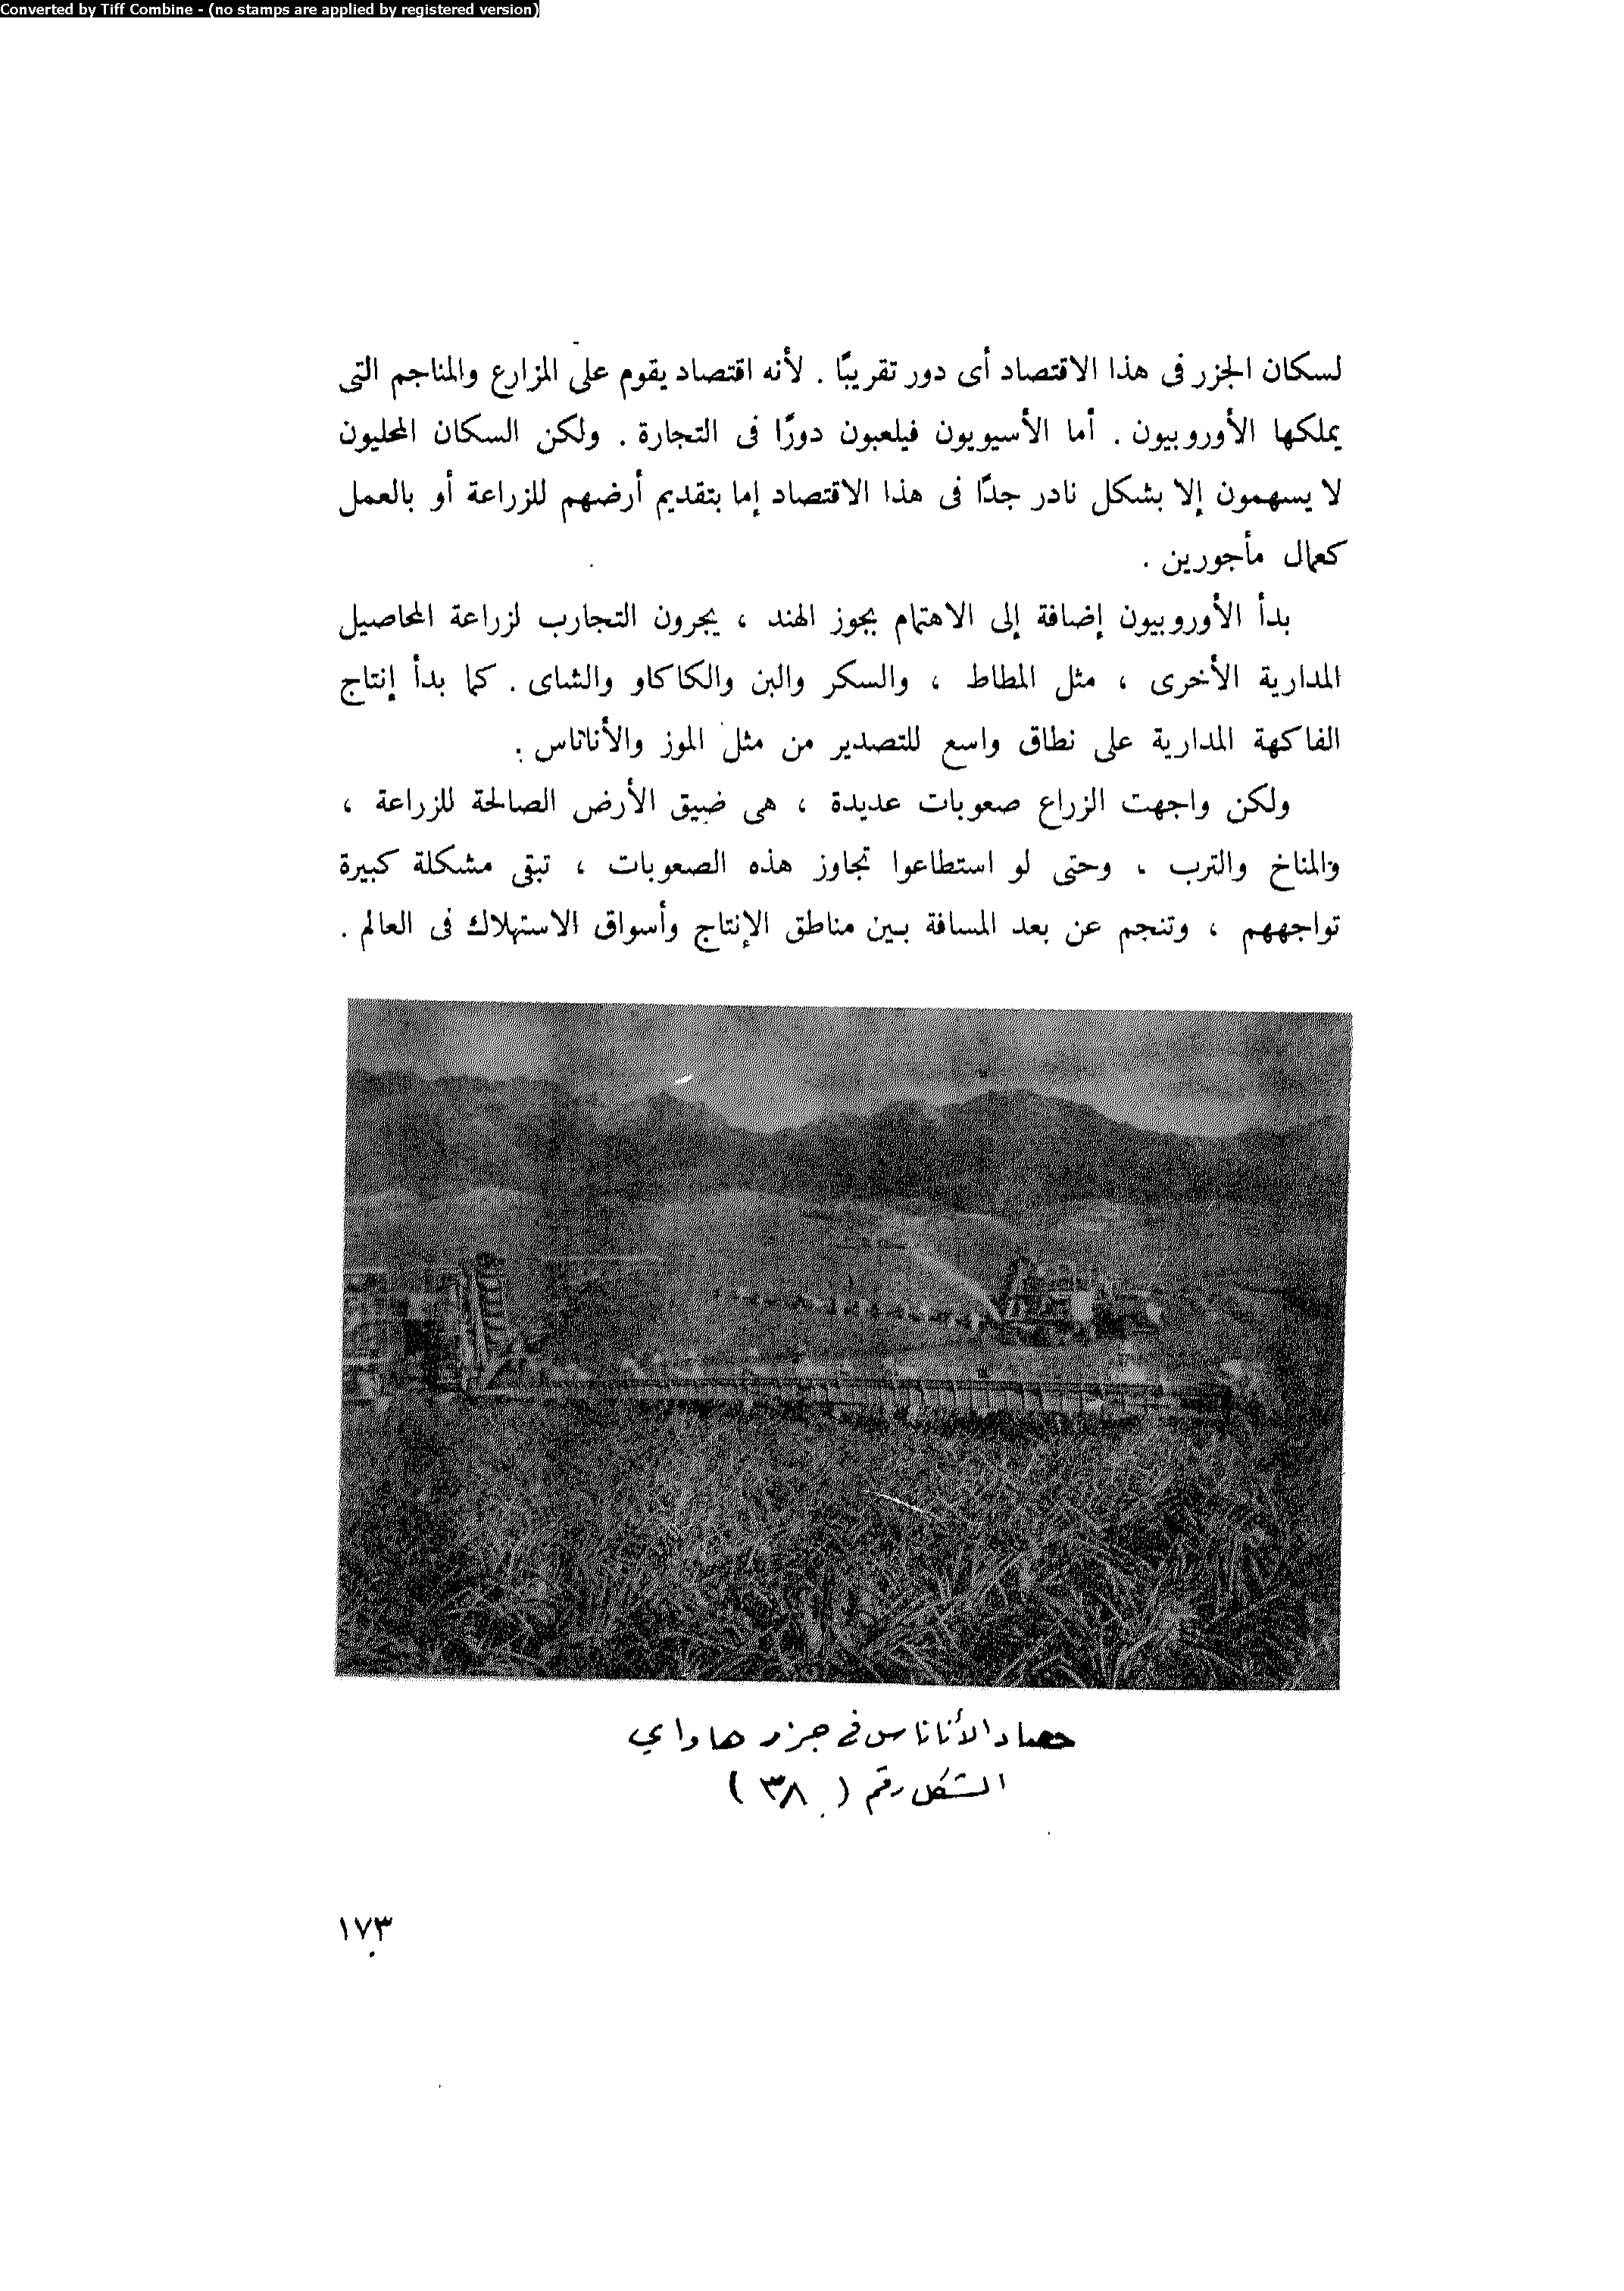 Converted by Tiff Combine - (no stamps are applied by registered version)
لسكان الجزر فى هذا الاقتصاد أى دور تقريبًا . لأنه اقتصاد يقوم على المزارع والمناجم التى
يملكها الأوروبيون . أما الأسيويون فيلعبون دورًا فى التجارة . ولكن السكان المحليون
لا يسهمون إلا بشكل نادر جدًا فى هذا الاقتصاد إما بتقديم أرضهم للزراعة أو بالعمل
كعمال مأجورين .
بدأ الأوروبيون إضافة إلى الاهتمام بجوز الهند ، يجرون التجارب لزراعة المحاصيل
المدارية الأخرى ، مثل المطاط ، والسكر والبن والكاكاو والشاى . كما بدأ إنتاج
الفاكهة المدارية على نطاق واسع للتصدير من مثل الموز والأناناس .
ولكن واجهت الزراع صعوبات عديدة ، هى ضيق الأرض الصالحة للزراعة ،
والمناخ والترب ، وحتى لو استطاعوا تجاوز هذه الصعوبات ، تبقى مشكلة كبيرة
تواجههم ، وتنجم عن بعد المسافة بين مناطق الإنتاج وأسواق الاستهلاك فى العالم .
حصاد الأناناس في جزر هاواي
الشكل رقم ( ٣٨ )
١٧٣